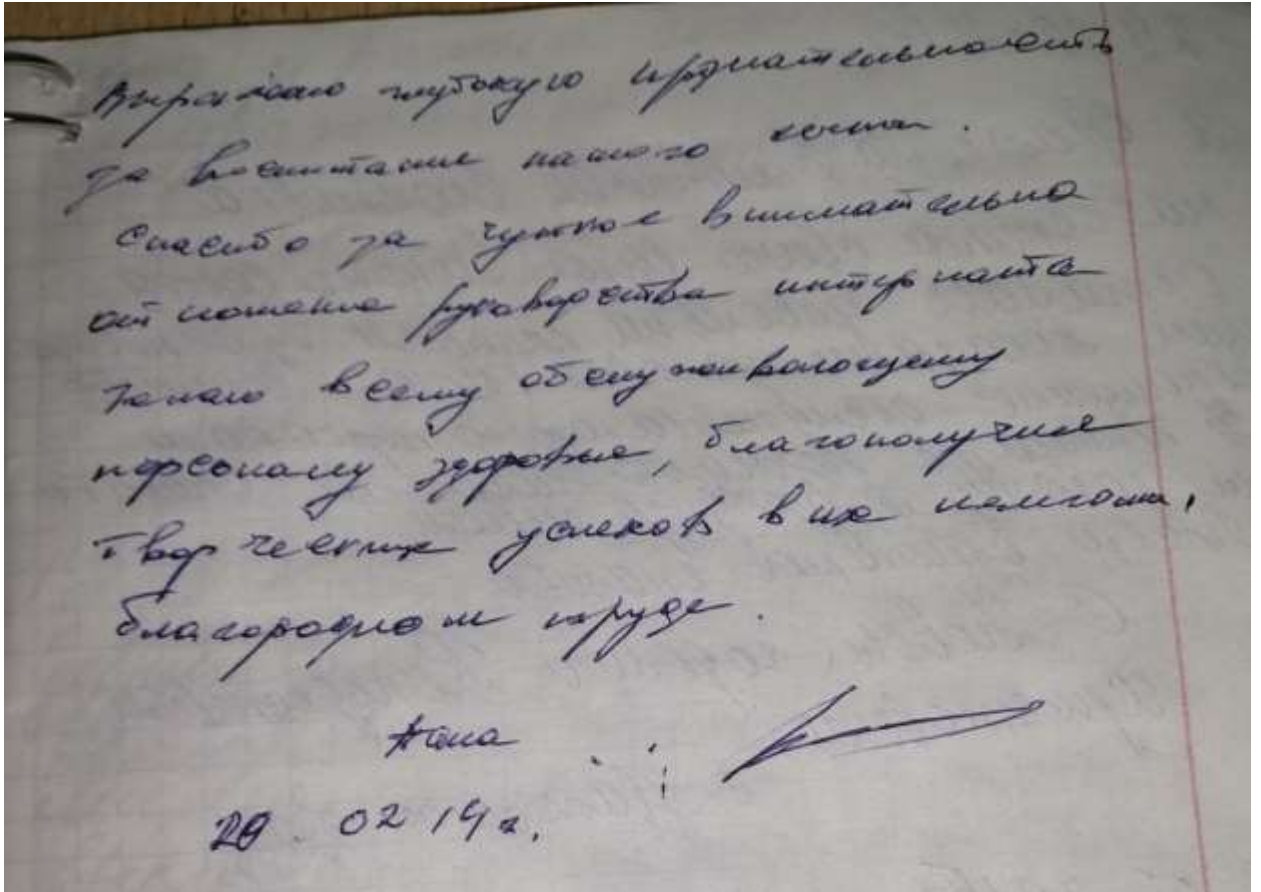 Выражаю глубокую признательность
за воспитание нашего
Спасибо за чуткое внимательно
отношение руководства интерната
Желаю всему обслуживающему
персоналу здоровье, благополучие
творческих успехов в их нелегком,
благородном труде.
02 14 г.